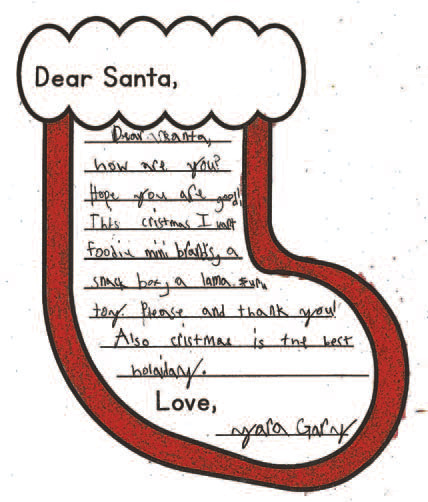 Dear Santa,
Dear Santa,
how are you?
Hope you are good!
This cristmas I want
foodie mini brands, a
snack box, a lama
toy. Please and thank you!
Also cristmas is the best
holaiday.
Love,
yara Gary